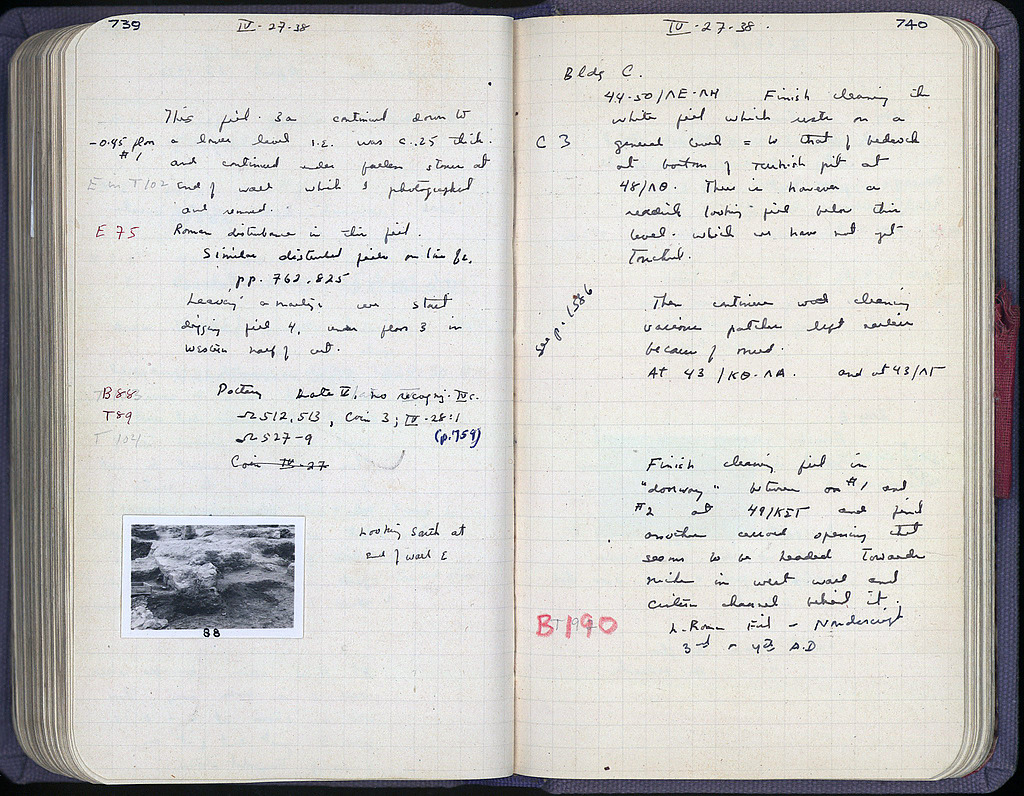 739
IV·27·38
This fill 3a continued down to
-0.95 from a lower level i.e. was c. .25 thick.
#1 and continued under fallen stones at
E in T/102 end of wall which I photographed
and removed.
E 75 Roman disturbance in this fill.
Similar disturbed fills on line
pp. 762, 825
we start
digging fill 4, under floor 3 in
western half of cut.
B88 Pottery Late V, no recogn. IV c.
T89 Ω 512, 513, Coin 3; IV-28:1
T 104 Ω 527-9 (p. 759)
Coin IV-27
Looking south at
end of wall E
88
740
IV·27·38.
Bldg C.
44-50/ΛΕ-ΛΗ Finish cleaning the
white fill which rests on a
C 3 general level = to that of bedrock
at bottom of Turkish pit at
48/ΛΘ. There is however a
reddish looking fill below this
level which we have not yet
touched.
see p. 1586
Then continue cleaning
various patches left earlier
because of mud.
At 43/ΚΘ-ΛΑ. and at 43/ΛΓ
Finish cleaning fill in
"doorway" between #1 and
#2 at 49/ and find
another second opening that
seems to be headed towards
niche in west wall and
cistern channel behind it.
B190 L. Roman Fill - Nondescript
3rd - 4th A.D